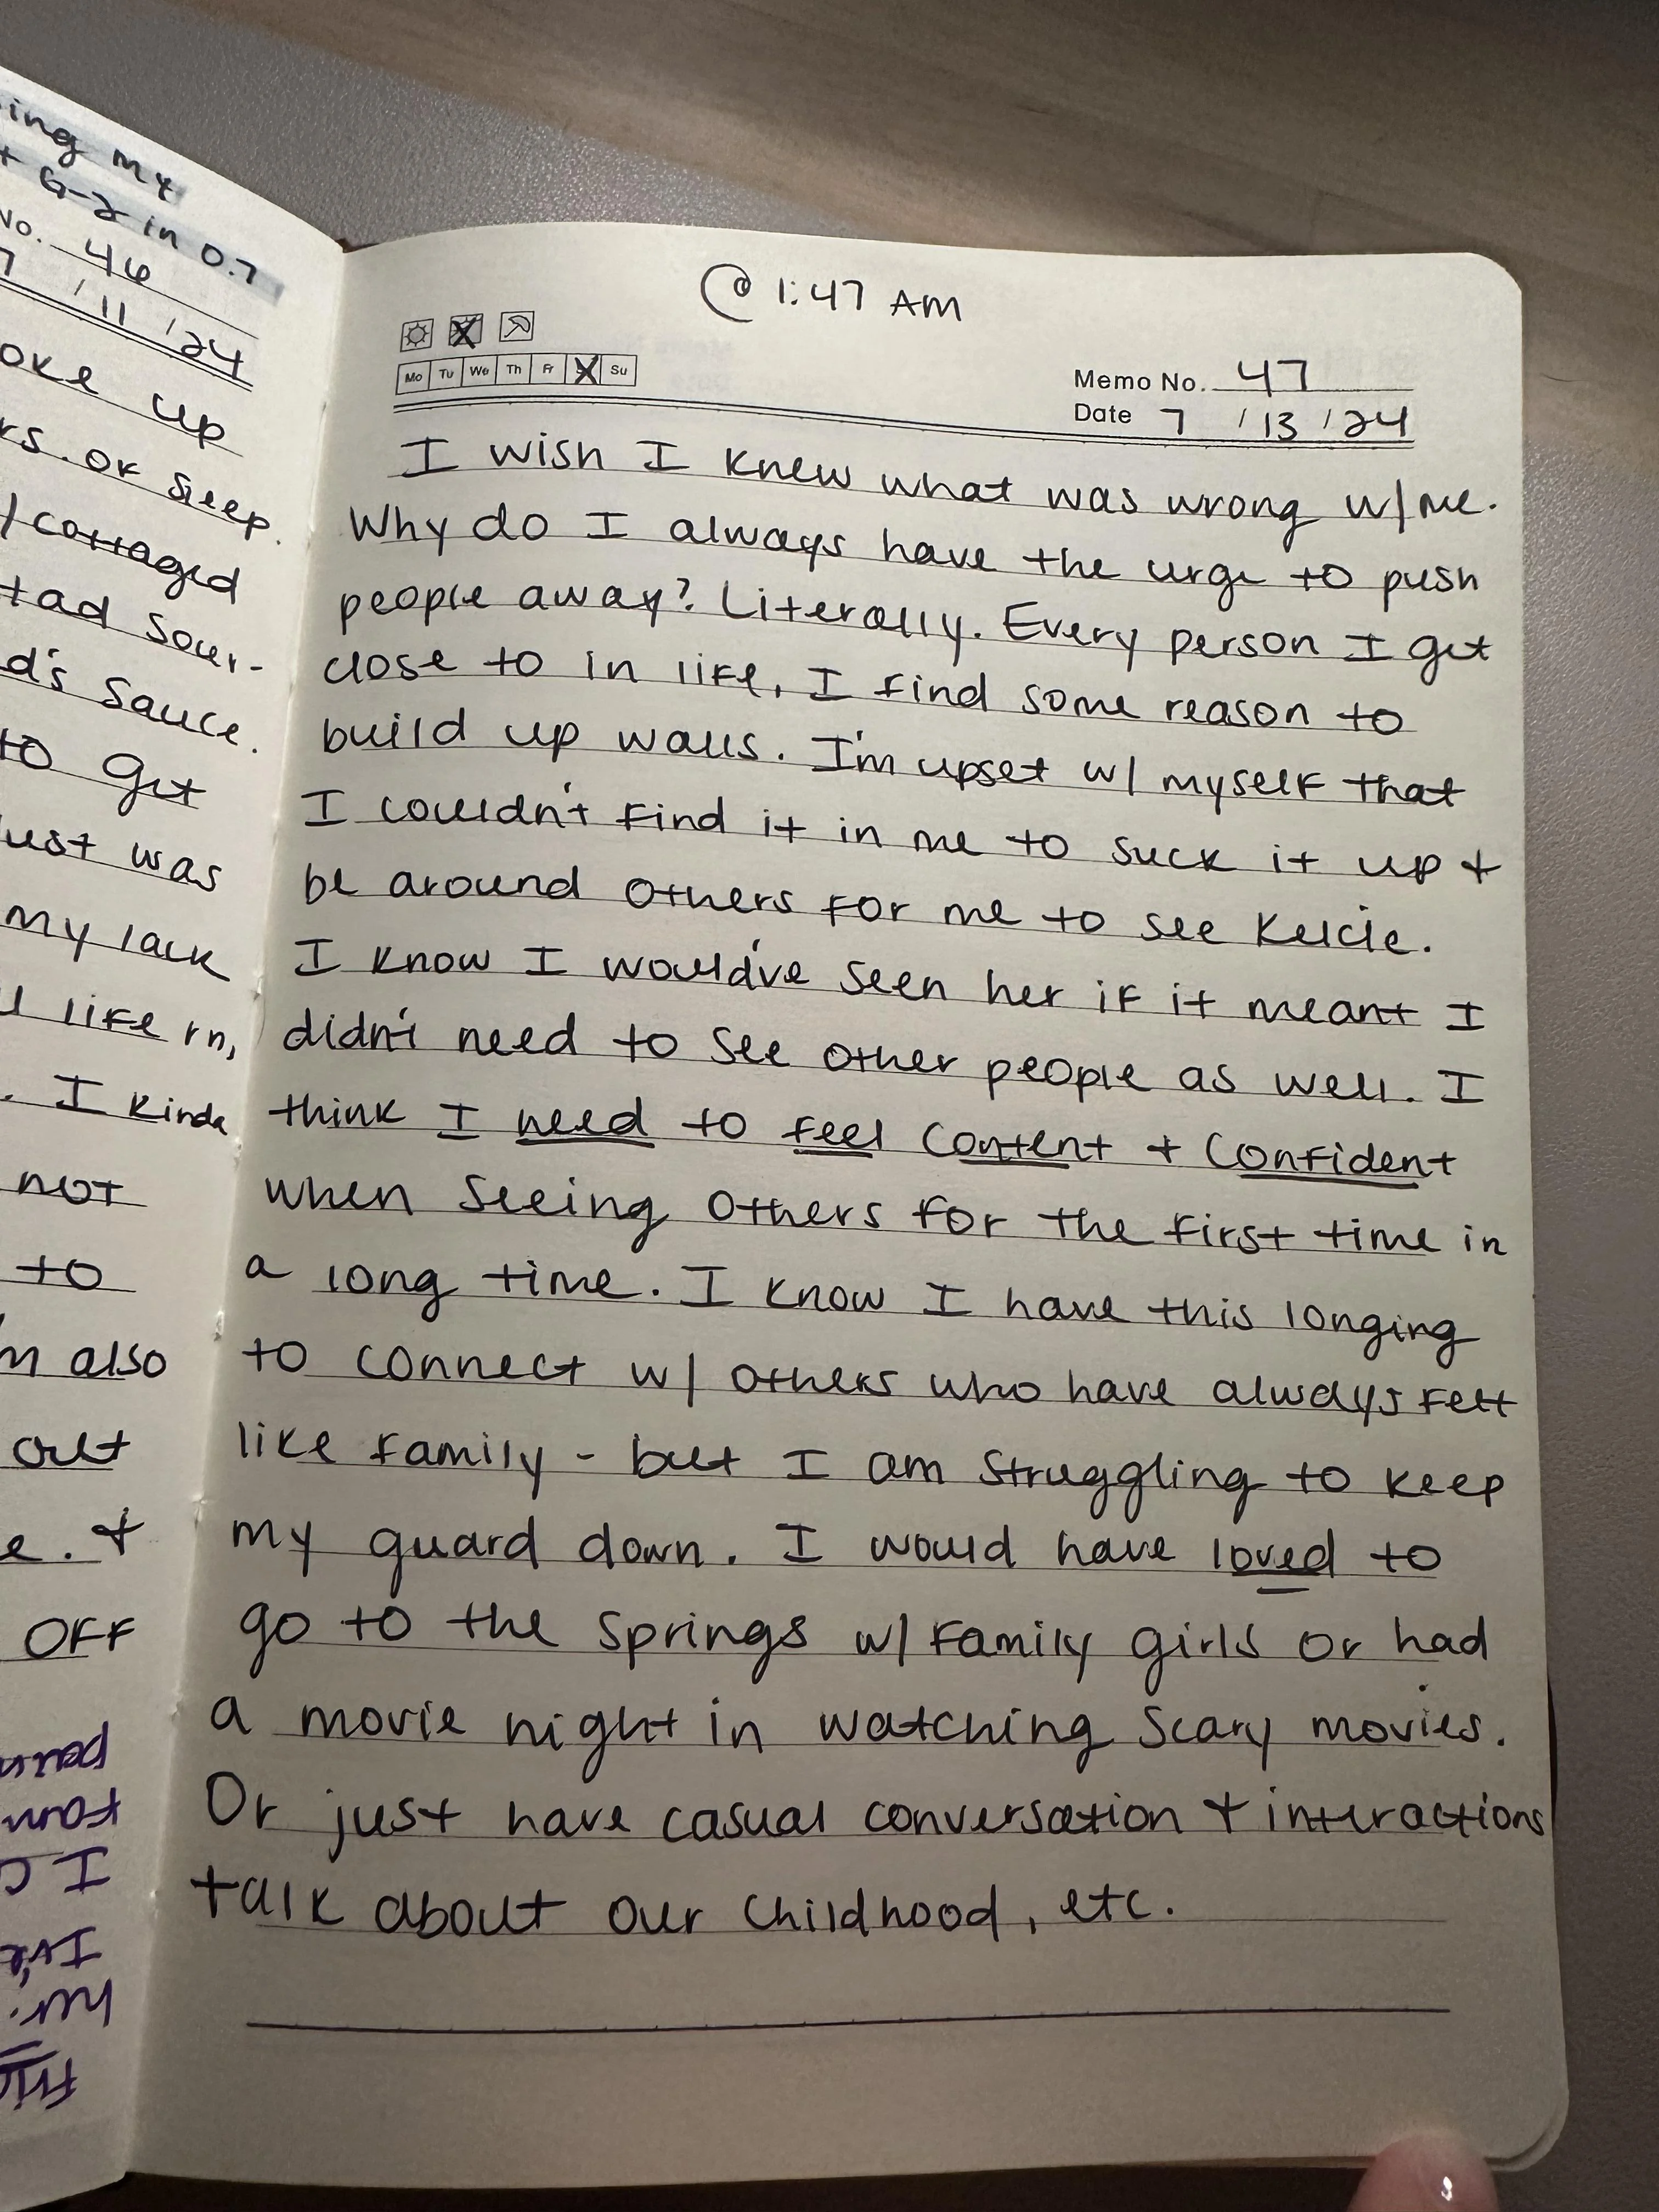 ing my
+ G-2 in 0.7
No. 46
7 / 11 / 24
oke up
rs. of sleep.
/ cottaged
tad sour-
d's sauce.
to get
ust was
my lack
life rn,
. I kinda
not
to
m also
out
e. +
OFF
@ 1:47 AM
Mo Tu We Th Fr Su
Memo No. 47
Date 7 / 13 / 24
I wish I knew what was wrong w/ me.
Why do I always have the urge to push
people away? Literally. Every person I get
close to in life, I find some reason to
build up walls. I'm upset w/ myself that
I couldn't find it in me to suck it up +
be around others for me to see Kelcie.
I know I would've seen her if it meant I
didn't need to see other people as well. I
think I need to feel content + confident
when seeing others for the first time in
a long time. I know I have this longing
to connect w/ others who have always felt
like family - but I am struggling to keep
my guard down. I would have loved to
go to the springs w/ family girls or had
a movie night in watching scary movies.
Or just have casual conversation + interactions
talk about our childhood, etc.